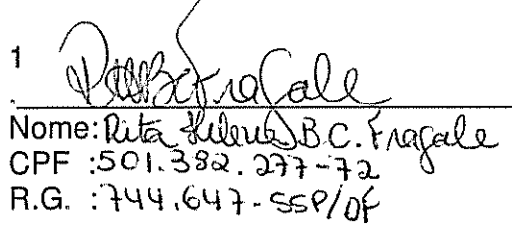 1
Nome: Rita Helena B.C. Fragale
CPF :501.382.277-72
R.G. :744.647-SSP/DF